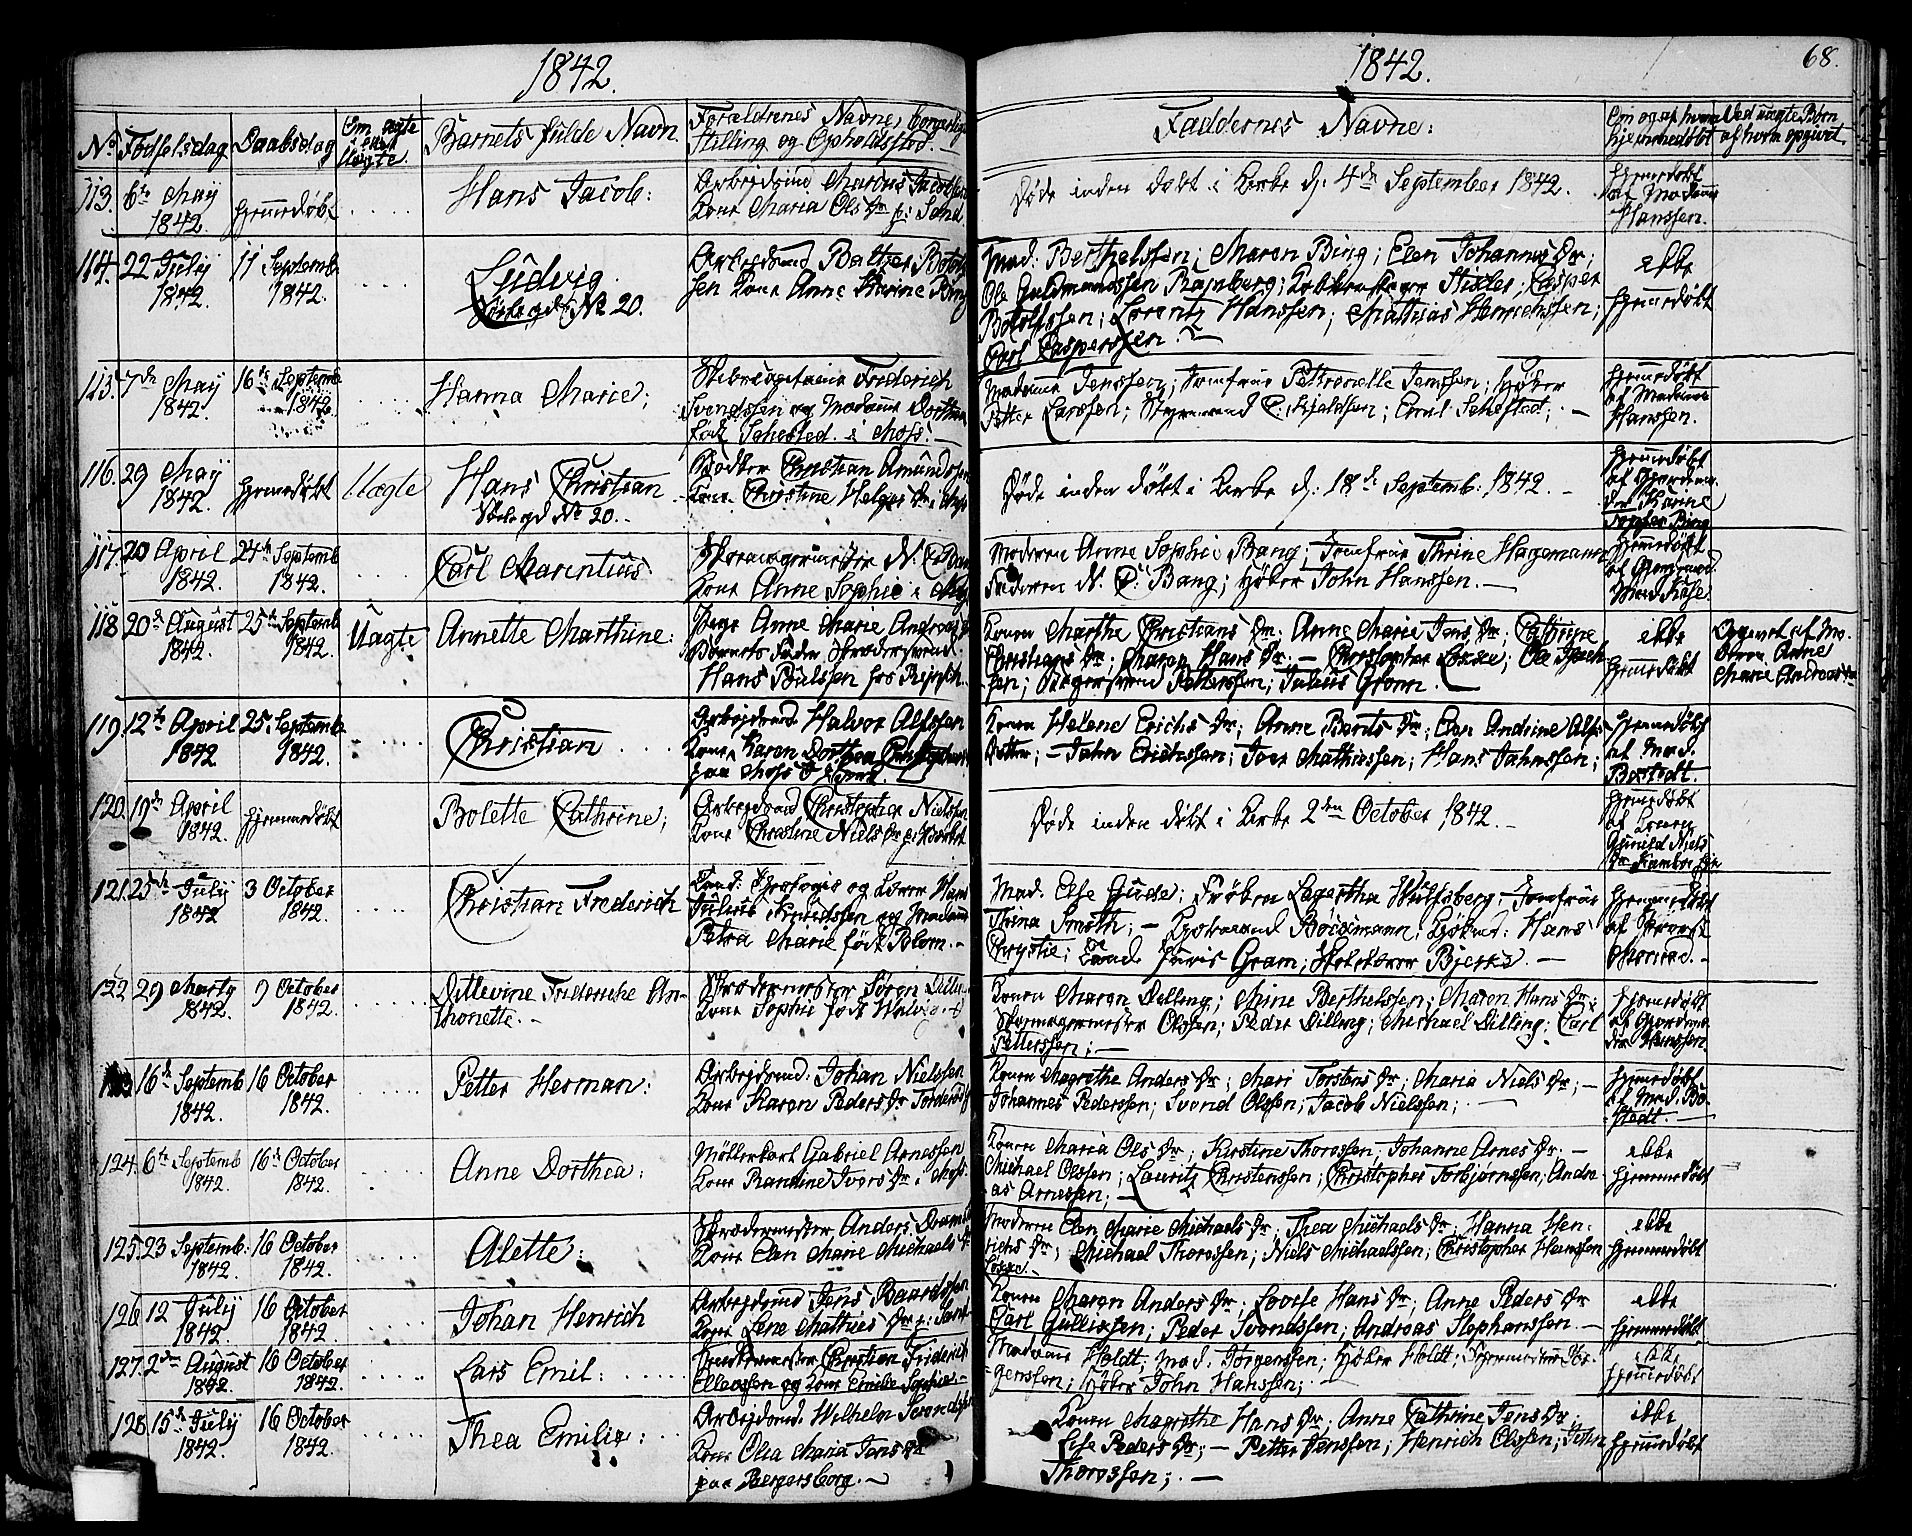 1842.
1842.
68.
No. Fødselsdag Daabsdag Om ægte eller Uægte. Barnets fulde Navn. Forældrenes Navne, borgerlige Stilling og Opholdssted.
Faddernes Navne:
Om og af hvem hjemmedøbt Ved uægte Børn af hvem opgivet
113. 6te May 1842. hjemmedøbt
Hans Jacob:
Arbejdsmd Marcus Jacobsen
Kone Maria Ols Dr p: Sand
Døde inden døbt i Kirke d. 4de September 1842.
Hjemmedøbt
af Madame
Hanssen.
114. 22 July 1842. 11 Septemb. 1842.
Ludvig
No 20.
Arbejdsmd Baltzer
sen Kone Anne Karine
Mad: Berthelssen; Maren Bing; Elen Johannes Dr;
Ole Guldmundssen Casper
Lorentz Hanssen; Mathias Henrichssen;
Carl Casperssen.
ikke
hjemmedøbt
115. 7de May 1842. 16de Septemb 1842.
Hanna Marie;
Skibscapitaine Frederich
Svendssen og Madame Dorthea
født Sehested i Moss.
Madame Jenssen; Jomfrue Petronelle Jenssen; Høker
Petter Larssen; Styrmand Emil Sehested;
hjemmedøbt
af Madame
Hanssen.
116. 29 May 1842. hjemmedøbt Uægte
Hans Christian
No 20.
Christian Amundssen
Kone Christine Helges Dr i Moss
Døde inden døbt i Kirke d: 18de Septemb: 1842.
hjemmedøbt
117. 20 April 1842. 24de Septemb 1842.
Carl Marentius
Skomagermester N. C. Bang
Kone Anne Sophie i Moss
Moderen Anne Sophie Bang; Jomfrue Thrine Hagemann
Faderen N. C. Bang; Høker John Hanssen.
hjemmedøbt
118. 20de August 1842. 25de Septemb 1842. Uægte
Annette Marthine:
Pige Anne Marie Andreas Dr
Barnets Fader Skrædersvend
Hans Pulssen hos
Konen Marthe Christians Dr; Anne Marie Jens Dr; Cathrine
Christians Dr; Maren Hans Dr; Christopher
sen; Petterssen; Julius Gronn.
ikke
hjemmedøbt
Opgivet af Mo-
deren Anne
Marie Andreas Dr
119. 12te April 1842 25 Septemb 1842.
Christian
Arbejdsmd Halvor Alfssen
Kone Karen Dorthea
paa Moss
Konen Helene Erichs Dr; Anne Bernts Dr; Elen Andrine Alfs
Datter; John Erichssen; Iver Mathiessen; Hans Johnssen;
hjemmedøbt
af Mad.
Bostedt.
120. 19de April 1842. hjemmedøbt
Bolette Cathrine;
Arbejdsmd Christopher Nielssen
Kone Christine Niels Dr
Døde inden døbt i Kirke 2den October 1842.
hjemmedøbt
af Konen
Gunild Niels
Dr
121. 25de July 1842 3 October 1842.
Christian Frederich
Cand: Theologie og Lærer Hans
Julius Knudssen og Madame
Petra Marie født Blom.
Mad. Else Gude; Frøken Lagertha Wulfsberg; Jomfrue
Thrina Smith; Kjøbmand Hans
Chrystie; Cand: Juris Gram;
hjemmedøbt
122 29 Marty 1842. 9 October 1842.
Dittevine Frederiche An-
thonette.
Skrædermester Søren Dilling
Kone Sophie født
Konen Maren Dilling; Mine Berthelssen; Maren Hans Dr;
Skomagermester Olssen; Peder Dilling; Michael Dilling; Carl
Petterssen;
hjemmedøbt
123 16de Septemb 1842. 16 October 1842.
Petter Herman:
Arbejdsmd: Johan Nielssen
Kone Karen Peders Dr
Konen Magrethe Anders Dr; Mari Torstens Dr; Maria Niels Dr;
Johannes Pederssen; Svend Olssen; Jacob Nielssen;
hjemmedøbt
af Mad. Bo-
stedt.
124. 6te Septemb 1842. 16de October 1842.
Anne Dorthea:
Møllerkarl Gabriel Arnessen
Kone Randine Ivers Dr i Moss
Konen Maria Ols Dr; Kirstine Thorossen; Johanne Arnes Dr.
Michael Olssen; Lauritz Christenssen; Christopher Torbjørnssen; Andre-
as Arnessen;
ikke
hjemmedøbt
125. 23 Septemb: 1842. 16 October 1842.
Alette:
Skrædermester Anders
Kone Elen Marie Michaels Dr
Moderen Elen Marie Michaels Dr; Thea Michaels Dr; Hanna Hen-
richs Dr; Michael Thorossen; Niels Michaelssen; Christopher Hanssen
ikke
hjemmedøbt
126 12 July 1842. 16 October 1842.
Johan Henrich
Arbejdsmd Jens Baardssen
Kone Lene Mathies Dr p: Sand
Konen Maren Anders Dr; Lovise Hans Dr; Anne Peders Dr
Carl Gullixsen; Peder Svendssen; Andreas Stephanssen
ikke
hjemmedøbt
127. 2den August 1842. 16 October 1842.
Lars Emil:
Christian Friderich
Ellevssen og Kone Emilie Sophie
Madame Holdt; Mad. Jørgenssen; Høker Holdt; Jør-
genssen; Høker John Hanssen;
ikke
hjemmedøbt
128. 15de July 1842. 16 October 1842.
Thea Emilie:
Arbejdsmd. Wilhelm Svendssen
Kone Olea Maria Jens Dr
paa Bergersborg.
Konen Magrethe Hans Dr; Anne Cathrine Jens Dr;
Lise Peders Dr; Petter Jenssen; Henrich Olssen; John
Thorossen;
ikke
hjemmedøbt